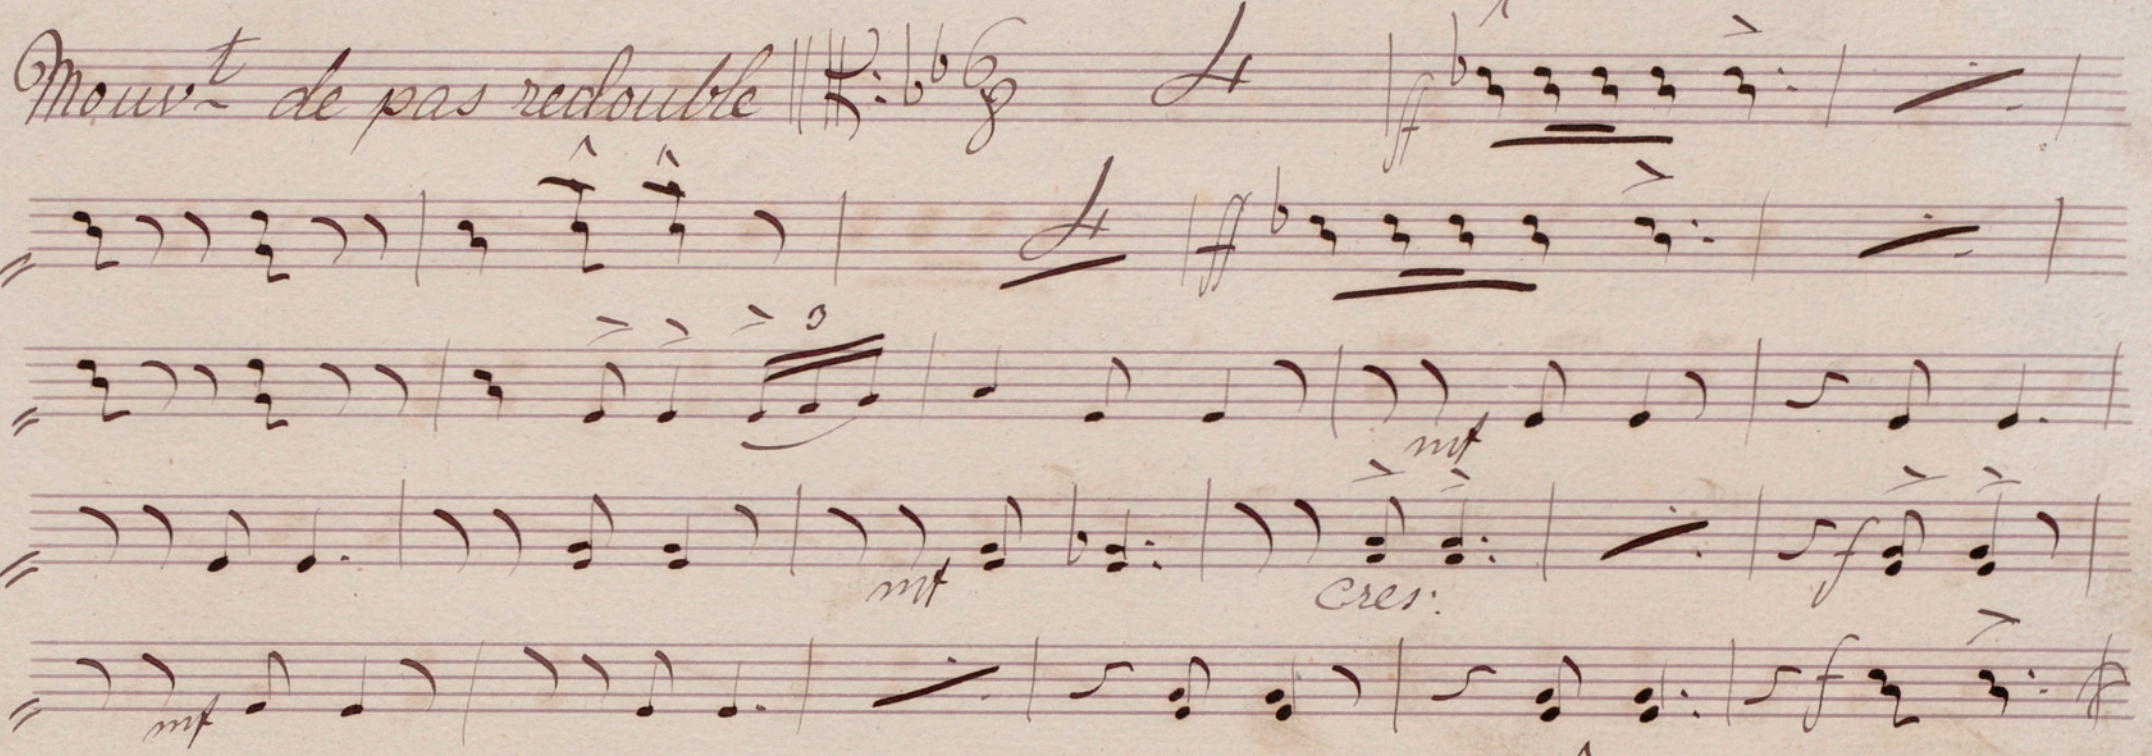 Mouvt de pas redouble 6/8 4 ff
4 ff
3 mf
mf cres: f
mf f